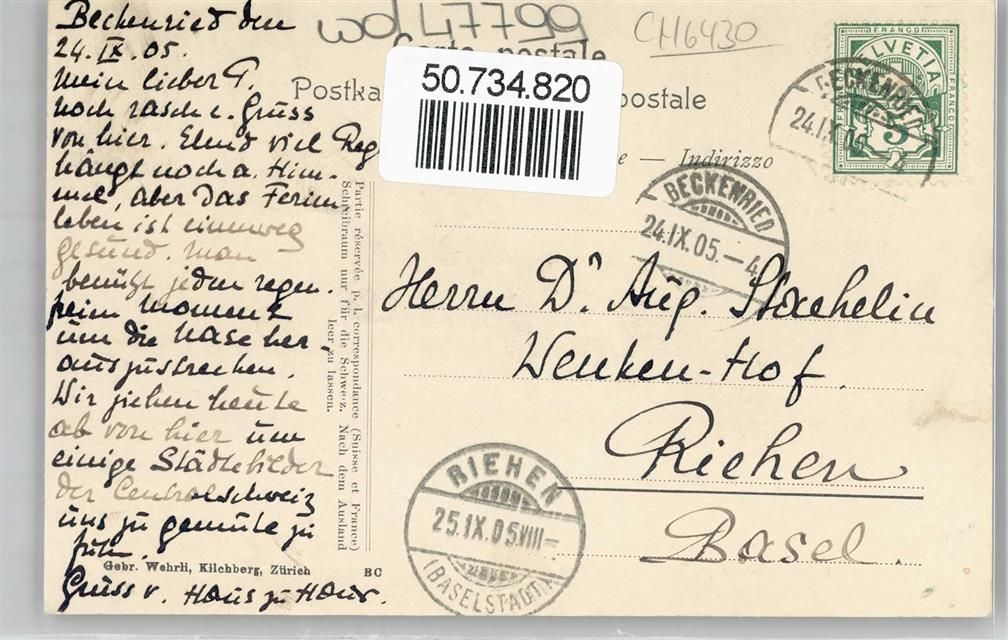 Beckenried den
24. IX. 05.
Mein lieber
noch rasch e. Gruss
von hier. viel Reg
hängt noch a. Him-
mel, aber das Ferien
leben ist einweg
gesund. Man
benützt jeden regen-
freien Moment
um die Nase her-
auszustrecken.
Wir ziehen heute
ab von hier um
einige Städtebilder
der Centralschweiz
uns zu gemüte zu
füh.
Gruss v. Haus zu Haus.
Gebr. Wehrli, Kilchberg, Zürich BC
Partie réservée p. l. correspondance (Suisse et France)
Schreibraum nur für die Schweiz. Nach dem Ausland
leer zu lassen.
wd 47799
CH6430
Carte postale
Postka
postale
50.734.820
e — Indirizzo
FRANCO
HELVETIA
FRANCO
FRANCO
5
BECKENRIED
24.IX.05.–4
BECKENRIED
24.IX.05.–4
Herrn Dr Aug. Staehelin
Wenken-Hof.
Riehen
Basel.
RIEHEN
25.IX.05.VIII–
(BASELSTADT)